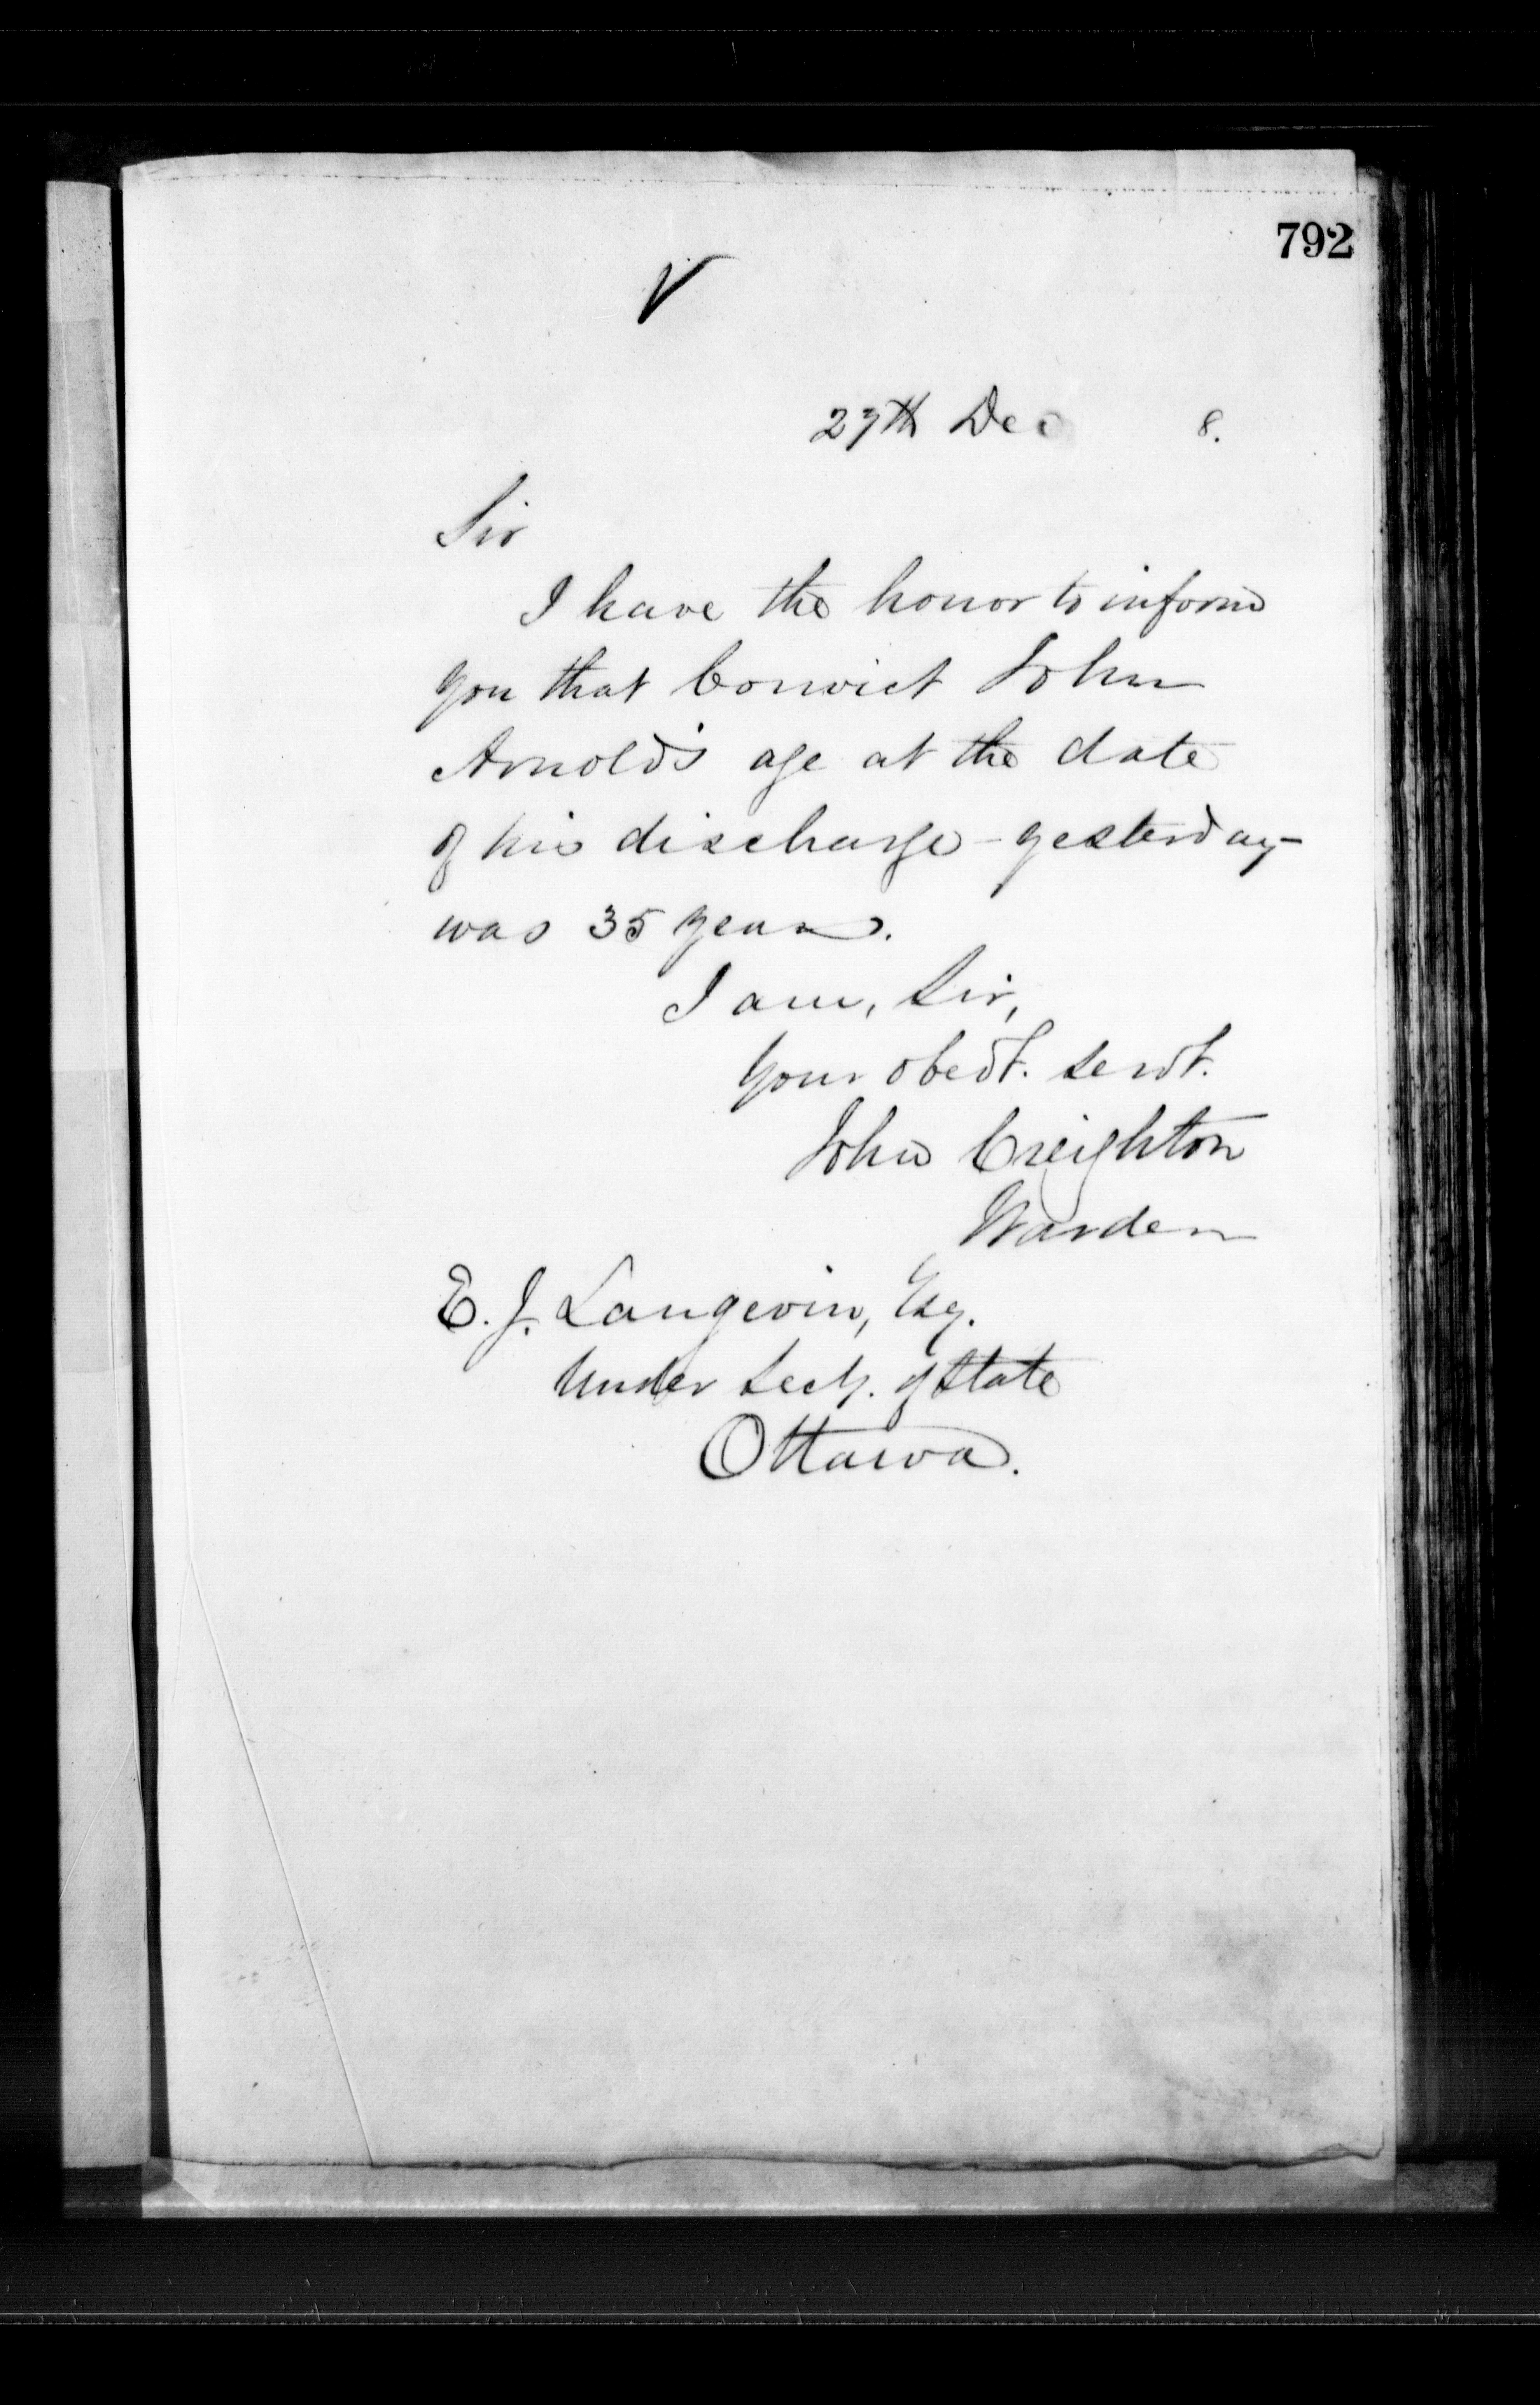 792
27th Dec 8.
Sir
I have the honor to inform
you that Convict John
Arnold's age at the date
of his discharge - yesterday -
was 35 years.
I am, Sir,
Your obedt. servt.
John Creighton
Warden
E. J. Langevin, Esq.
Under Secy. of State
Ottawa.